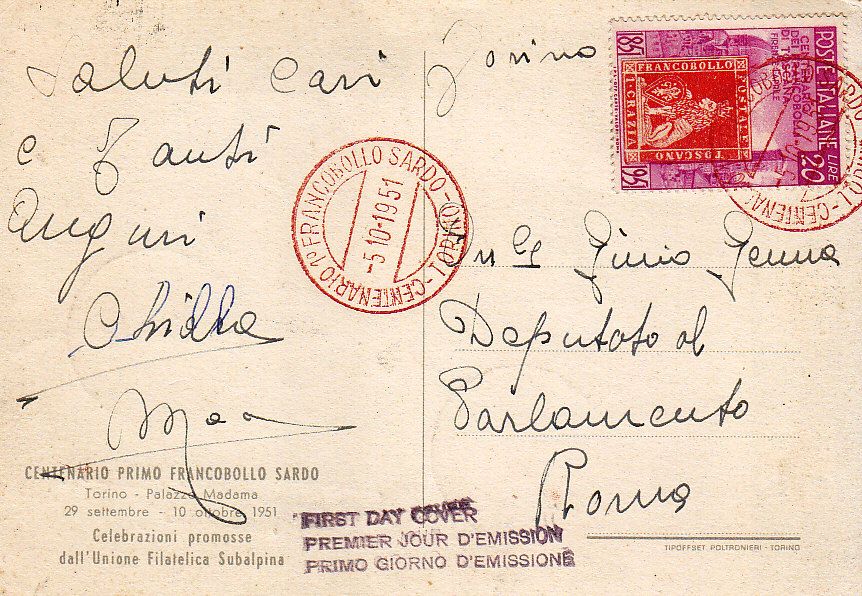 Saluti Cari
e Tanti
Auguri
CENTENARIO PRIMO FRANCOBOLLO SARDO
Torino - Palazzo Madama
29 settembre - 10 ottobre 1951
Celebrazioni promosse
dall'Unione Filatelica Subalpina
CENTENARIO 1º FRANCOBOLLO SARDO - TORINO -
-5.10.1951
FIRST DAY COVER
PREMIER JOUR D'EMISSION
PRIMO GIORNO D'EMISSIONE
Torino
1851
POSTE ITALIANE LIRE 20
CENTENARIO
DEI FRANCOBOLLI
DI TOSCANA
1951
FRANCOBOLLO
POSTALE
TOSCANO
1 CRAZIA
Deputato al
Parlamento
Roma
TIPOFFSET POLTRONIERI - TORINO